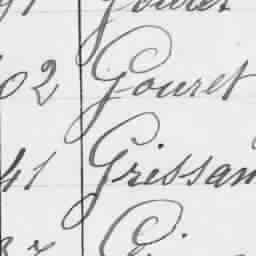 91 Gouret
02 Gouret
41 Grissan